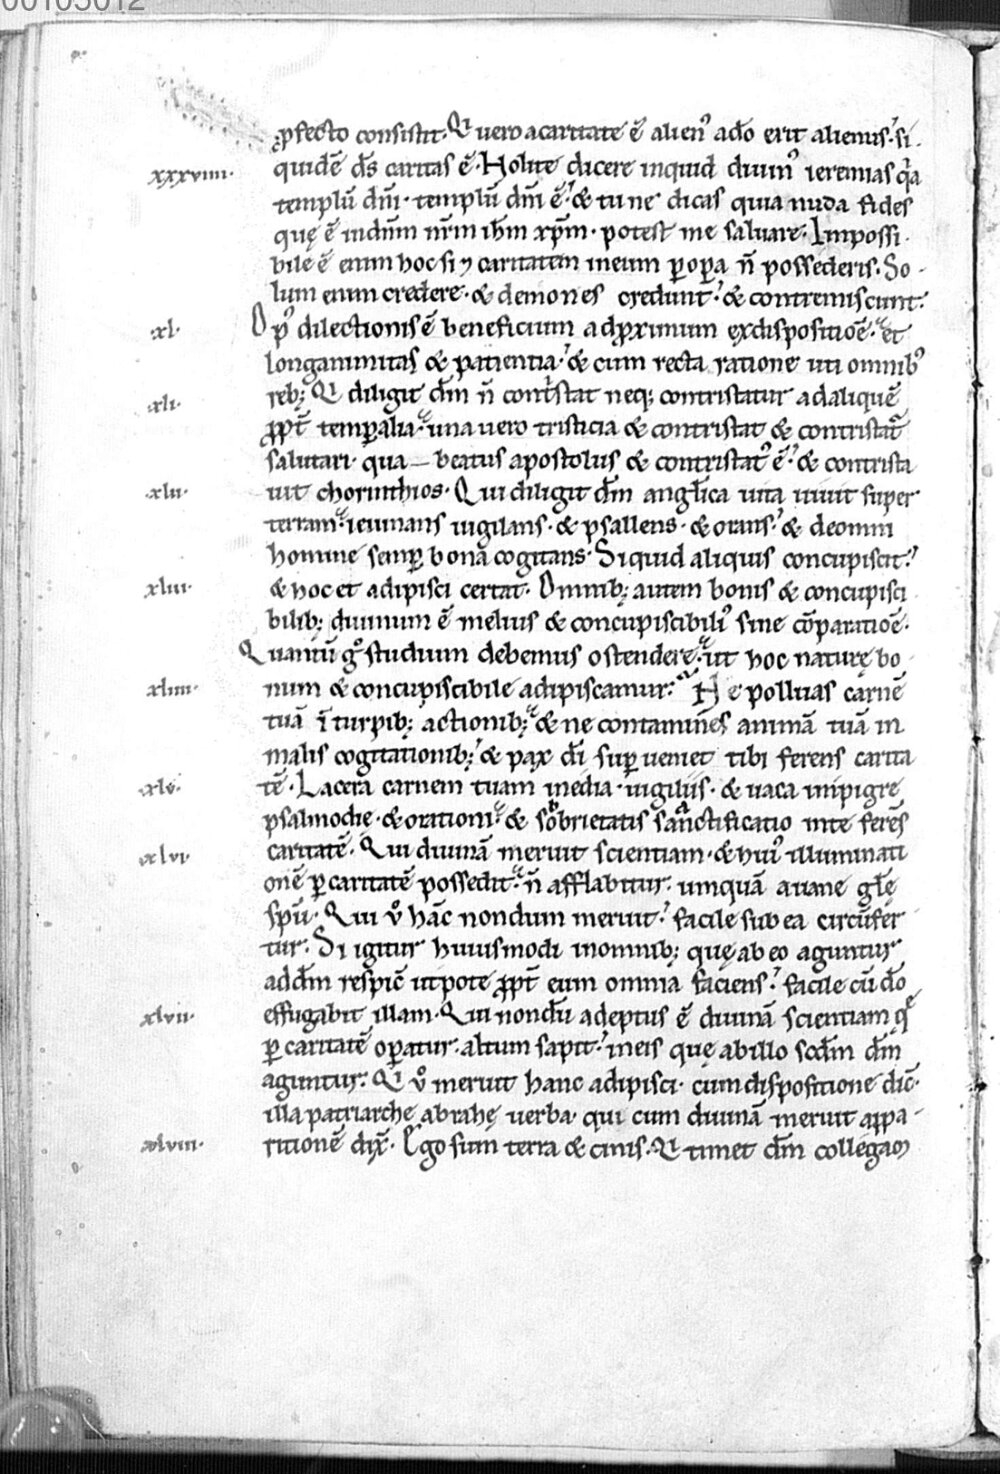 00103012
ꝓfecto consistit. Qͥ uero a caritate ē alienꝰ a dō erit alienus. si
quidē d̄s caritas ē. Nolite dicere inquid diuinꝰ ieremias q̄a
xxxviiii.
templū dn̄i. templū dn̄i ē. & tu ne dicas quia nuda fides
quę ē in dn̄m nr̄m ih̄m xp̄m. potest me saluare. Impossi
bile ē enim hoc si ⁊ caritatem in eum ꝑ oꝑa n̄ possederis. So
lum enim credere. & demones credunt. & contremiscunt.
xl.
Opꝰ dilectionis ē beneficium ad ꝓximum ex dispositiōe. et
longanimitas & patientia. & cum recta ratione uti omnibꝰ
xli.
reb; Qͥ diligit dm̄ n̄ contͥstat neq; contristatur ad aliquē
ꝓpt̄ temꝑalia. una uero tristicia & contristat & contristat᷑
salutari. qua beatus apostolus & contristatꝰ ē. & contrista
xlii.
uit chorinthios. Qui diligit dm̄ anglica uita uiuit super
terram. ieiunans uigilans. & psallens. & orans. & de omni
homine semꝑ bona cogitans. Si quid aliquis concupiscit.
xliii.
& hoc et adipisci certat. Omnib; autem bonis & concupisci
bilib; diuinum ē melius & concupiscibiliꝰ sine cōparatiōe.
Quantū gͦ studium debemus ostendere. ut hoc naturę bo
xliiii.
num & concupiscibile adipiscamur. Ne polluas carnē
tuā ī turpib; actionib; & ne contamines animā tuā in
malis cogitationib; & pax dī suꝑueniet tibi ferens carita
xlv.
tē. Lacera carnem tuam inedia. uigiliis. & uaca inpigre
psalmodię. & orationi. & sobrietatis sanctificatio in te ferēs
xlvi.
caritatē. Qui diuinā meruit scientiam. & huiꝰ illuminati
onē ꝑ caritatē possedit. n̄ afflabitur. umquā a uane glę̄
spū. Qui v̊ hāc nondum meruit. facile sub ea circūfer
tur. Si igitur huiusmodi in omnib; quę ab eo aguntur
ad dm̄ respic̄ utpote ꝓpt̄ eum omnia faciens. facile cū dō
xlvii.
effugabit illam. Qui nondū adeptus ē diuinā scientiam q̄
ꝑ caritatē oꝑatur. altum sapit. in eis quę ab illo scd̄m dm̄
aguntur. Qͥ v̊ meruit hanc adipisci. cum dispositione dic̄.
illa patriarche abrahę uerba. qui cum diuinā meruit appa
xlviii.
ritionē dix̄. Ego sum terra & cinis. Qͥ timet dm̄ collegam